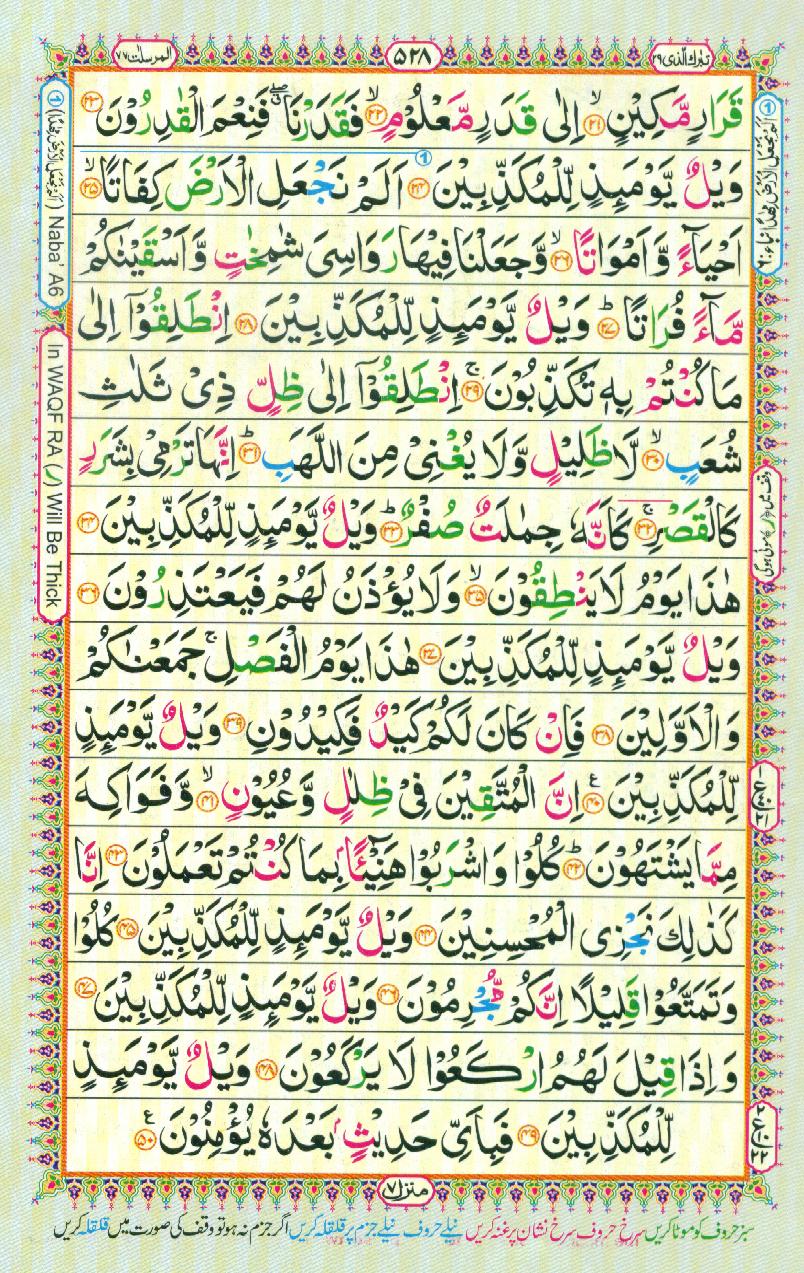 تبرك الذى ٢٩
٥٢٨
المرسلت ٧٧
قَرَارٍ مَّكِيْنٍ ﴿٢١﴾ۙ اِلٰى قَدَرٍ مَّعْلُوْمٍ ﴿٢٢﴾ۙ فَقَدَرْنَا ۖۗ فَنِعْمَ الْقٰدِرُوْنَ ﴿٢٣﴾
وَيْلٌ يَّوْمَئِذٍ لِّلْمُكَذِّبِيْنَ ﴿٢٤﴾ اَلَمْ نَجْعَلِ الْاَرْضَ كِفَاتًا ﴿٢٥﴾ۙ
اَحْيَآءً وَّاَمْوَاتًا ﴿٢٦﴾ۙ وَّجَعَلْنَا فِيْهَا رَوَاسِىَ شٰمِخٰتٍ وَّاَسْقَيْنٰكُمْ
مَّآءً فُرَاتًا ﴿٢٧﴾ؕ وَيْلٌ يَّوْمَئِذٍ لِّلْمُكَذِّبِيْنَ ﴿٢٨﴾ اِنْطَلِقُوْۤا اِلٰى
مَا كُنْتُمْ بِهٖ تُكَذِّبُوْنَ ﴿٢٩﴾ۚ اِنْطَلِقُوْۤا اِلٰى ظِلٍّ ذِىْ ثَلٰثِ
شُعَبٍ ﴿٣٠﴾ۙ لَّا ظَلِيْلٍ وَّلَا يُغْنِىْ مِنَ اللَّهَبِ ﴿٣١﴾ؕ اِنَّهَا تَرْمِىْ بِشَرَرٍ
كَالْقَصْرِ ﴿٣٢﴾ۚ كَاَنَّهٗ جِمٰلَتٌ صُفْرٌ ﴿٣٣﴾ؕ وَيْلٌ يَّوْمَئِذٍ لِّلْمُكَذِّبِيْنَ ﴿٣٤﴾
هٰذَا يَوْمُ لَا يَنْطِقُوْنَ ﴿٣٥﴾ۙ وَلَا يُؤْذَنُ لَهُمْ فَيَعْتَذِرُوْنَ ﴿٣٦﴾
وَيْلٌ يَّوْمَئِذٍ لِّلْمُكَذِّبِيْنَ ﴿٣٧﴾ هٰذَا يَوْمُ الْفَصْلِ ۚ جَمَعْنٰكُمْ
وَالْاَوَّلِيْنَ ﴿٣٨﴾ فَاِنْ كَانَ لَكُمْ كَيْدٌ فَكِيْدُوْنِ ﴿٣٩﴾ وَيْلٌ يَّوْمَئِذٍ
لِّلْمُكَذِّبِيْنَ ﴿٤٠﴾ع اِنَّ الْمُتَّقِيْنَ فِىْ ظِلٰلٍ وَّعُيُوْنٍ ﴿٤١﴾ۙ وَّفَوَاكِهَ
مِمَّا يَشْتَهُوْنَ ﴿٤٢﴾ؕ كُلُوْا وَاشْرَبُوْا هَنِيْٓئًۢا بِمَا كُنْتُمْ تَعْمَلُوْنَ ﴿٤٣﴾ اِنَّا
كَذٰلِكَ نَجْزِى الْمُحْسِنِيْنَ ﴿٤٤﴾ وَيْلٌ يَّوْمَئِذٍ لِّلْمُكَذِّبِيْنَ ﴿٤٥﴾ كُلُوْا
وَتَمَتَّعُوْا قَلِيْلًا اِنَّكُمْ مُّجْرِمُوْنَ ﴿٤٦﴾ وَيْلٌ يَّوْمَئِذٍ لِّلْمُكَذِّبِيْنَ ﴿٤٧﴾
وَاِذَا قِيْلَ لَهُمُ ارْكَعُوْا لَا يَرْكَعُوْنَ ﴿٤٨﴾ وَيْلٌ يَّوْمَئِذٍ
لِّلْمُكَذِّبِيْنَ ﴿٤٩﴾ فَبِاَىِّ حَدِيْثٍۢ بَعْدَهٗ يُؤْمِنُوْنَ ﴿٥٠﴾ع
① Naba' A6
In WAQF RA (ر) Will Be Thick
منزل ٧
سبز حروف کو موٹا کریں سرخ حروف سرخ نشان پر غنہ کریں نیلے حروف نیلے جزم پر قلقلہ کریں اگر جزم نہ ہو تو وقف کی صورت میں قلقلہ کریں